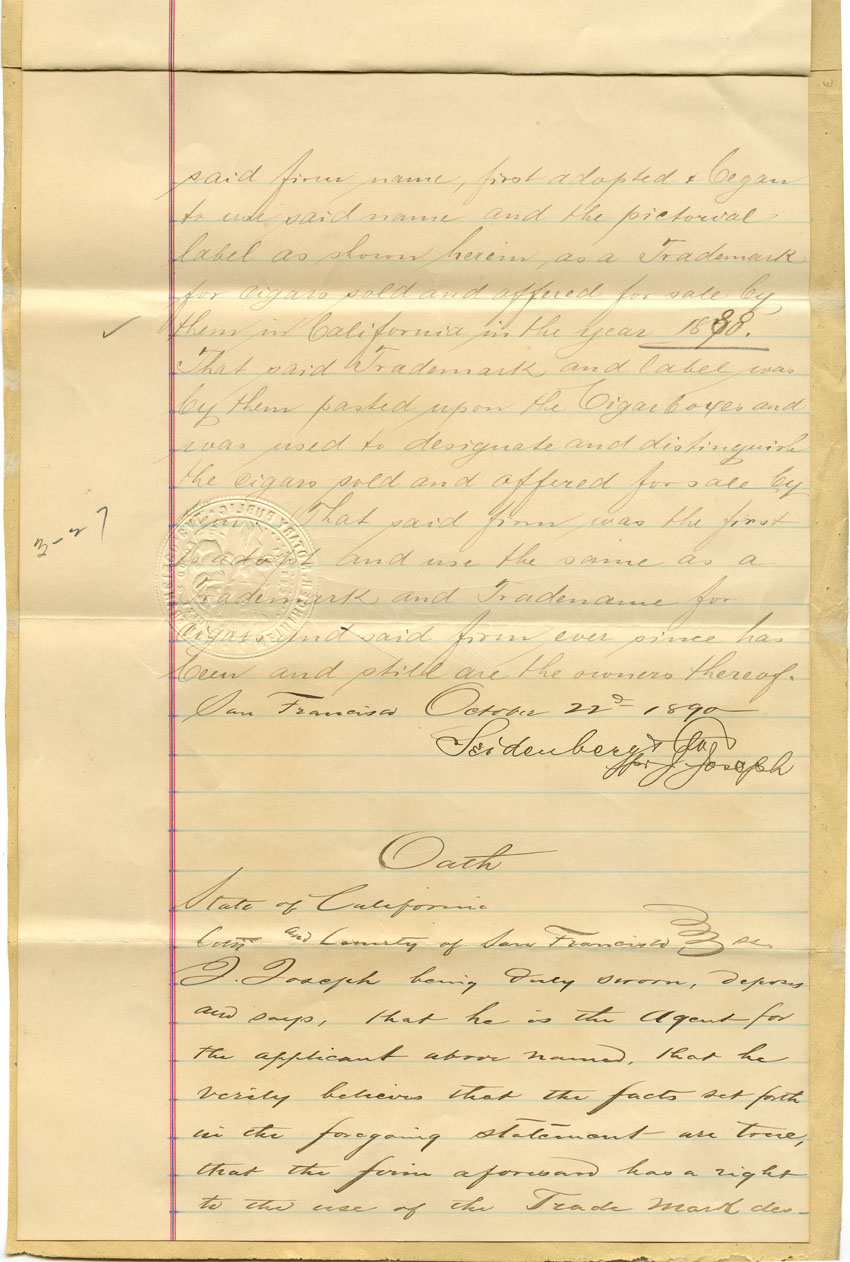 said firm name, first adopted & began
to use said name and the pictorial
label as shown herein, as a Trademark
for cigars sold and offered for sale by
them in California in the year 1888.
That said Trademark and label was
by them pasted upon the Cigarboxes and
was used to designate and distinguish
the cigars sold and offered for sale by
them. That said firm was the first
to adopt and use the same as a
Trademark and Tradename for
Cigars and said firm ever since has
been and still are the owners thereof.
3-27
NOTARY PUBLIC
San Francisco October 22d 1890
Seidenberg & Co
per J. Joseph
Oath
State of California
and County of San Francisco ss
J. Joseph being duly sworn, deposes
and says, that he is the Agent for
the applicant above named, that he
verily believes that the facts set forth
in the foregoing statement are true,
that the firm aforesaid has a right
to the use of the Trade Mark des-